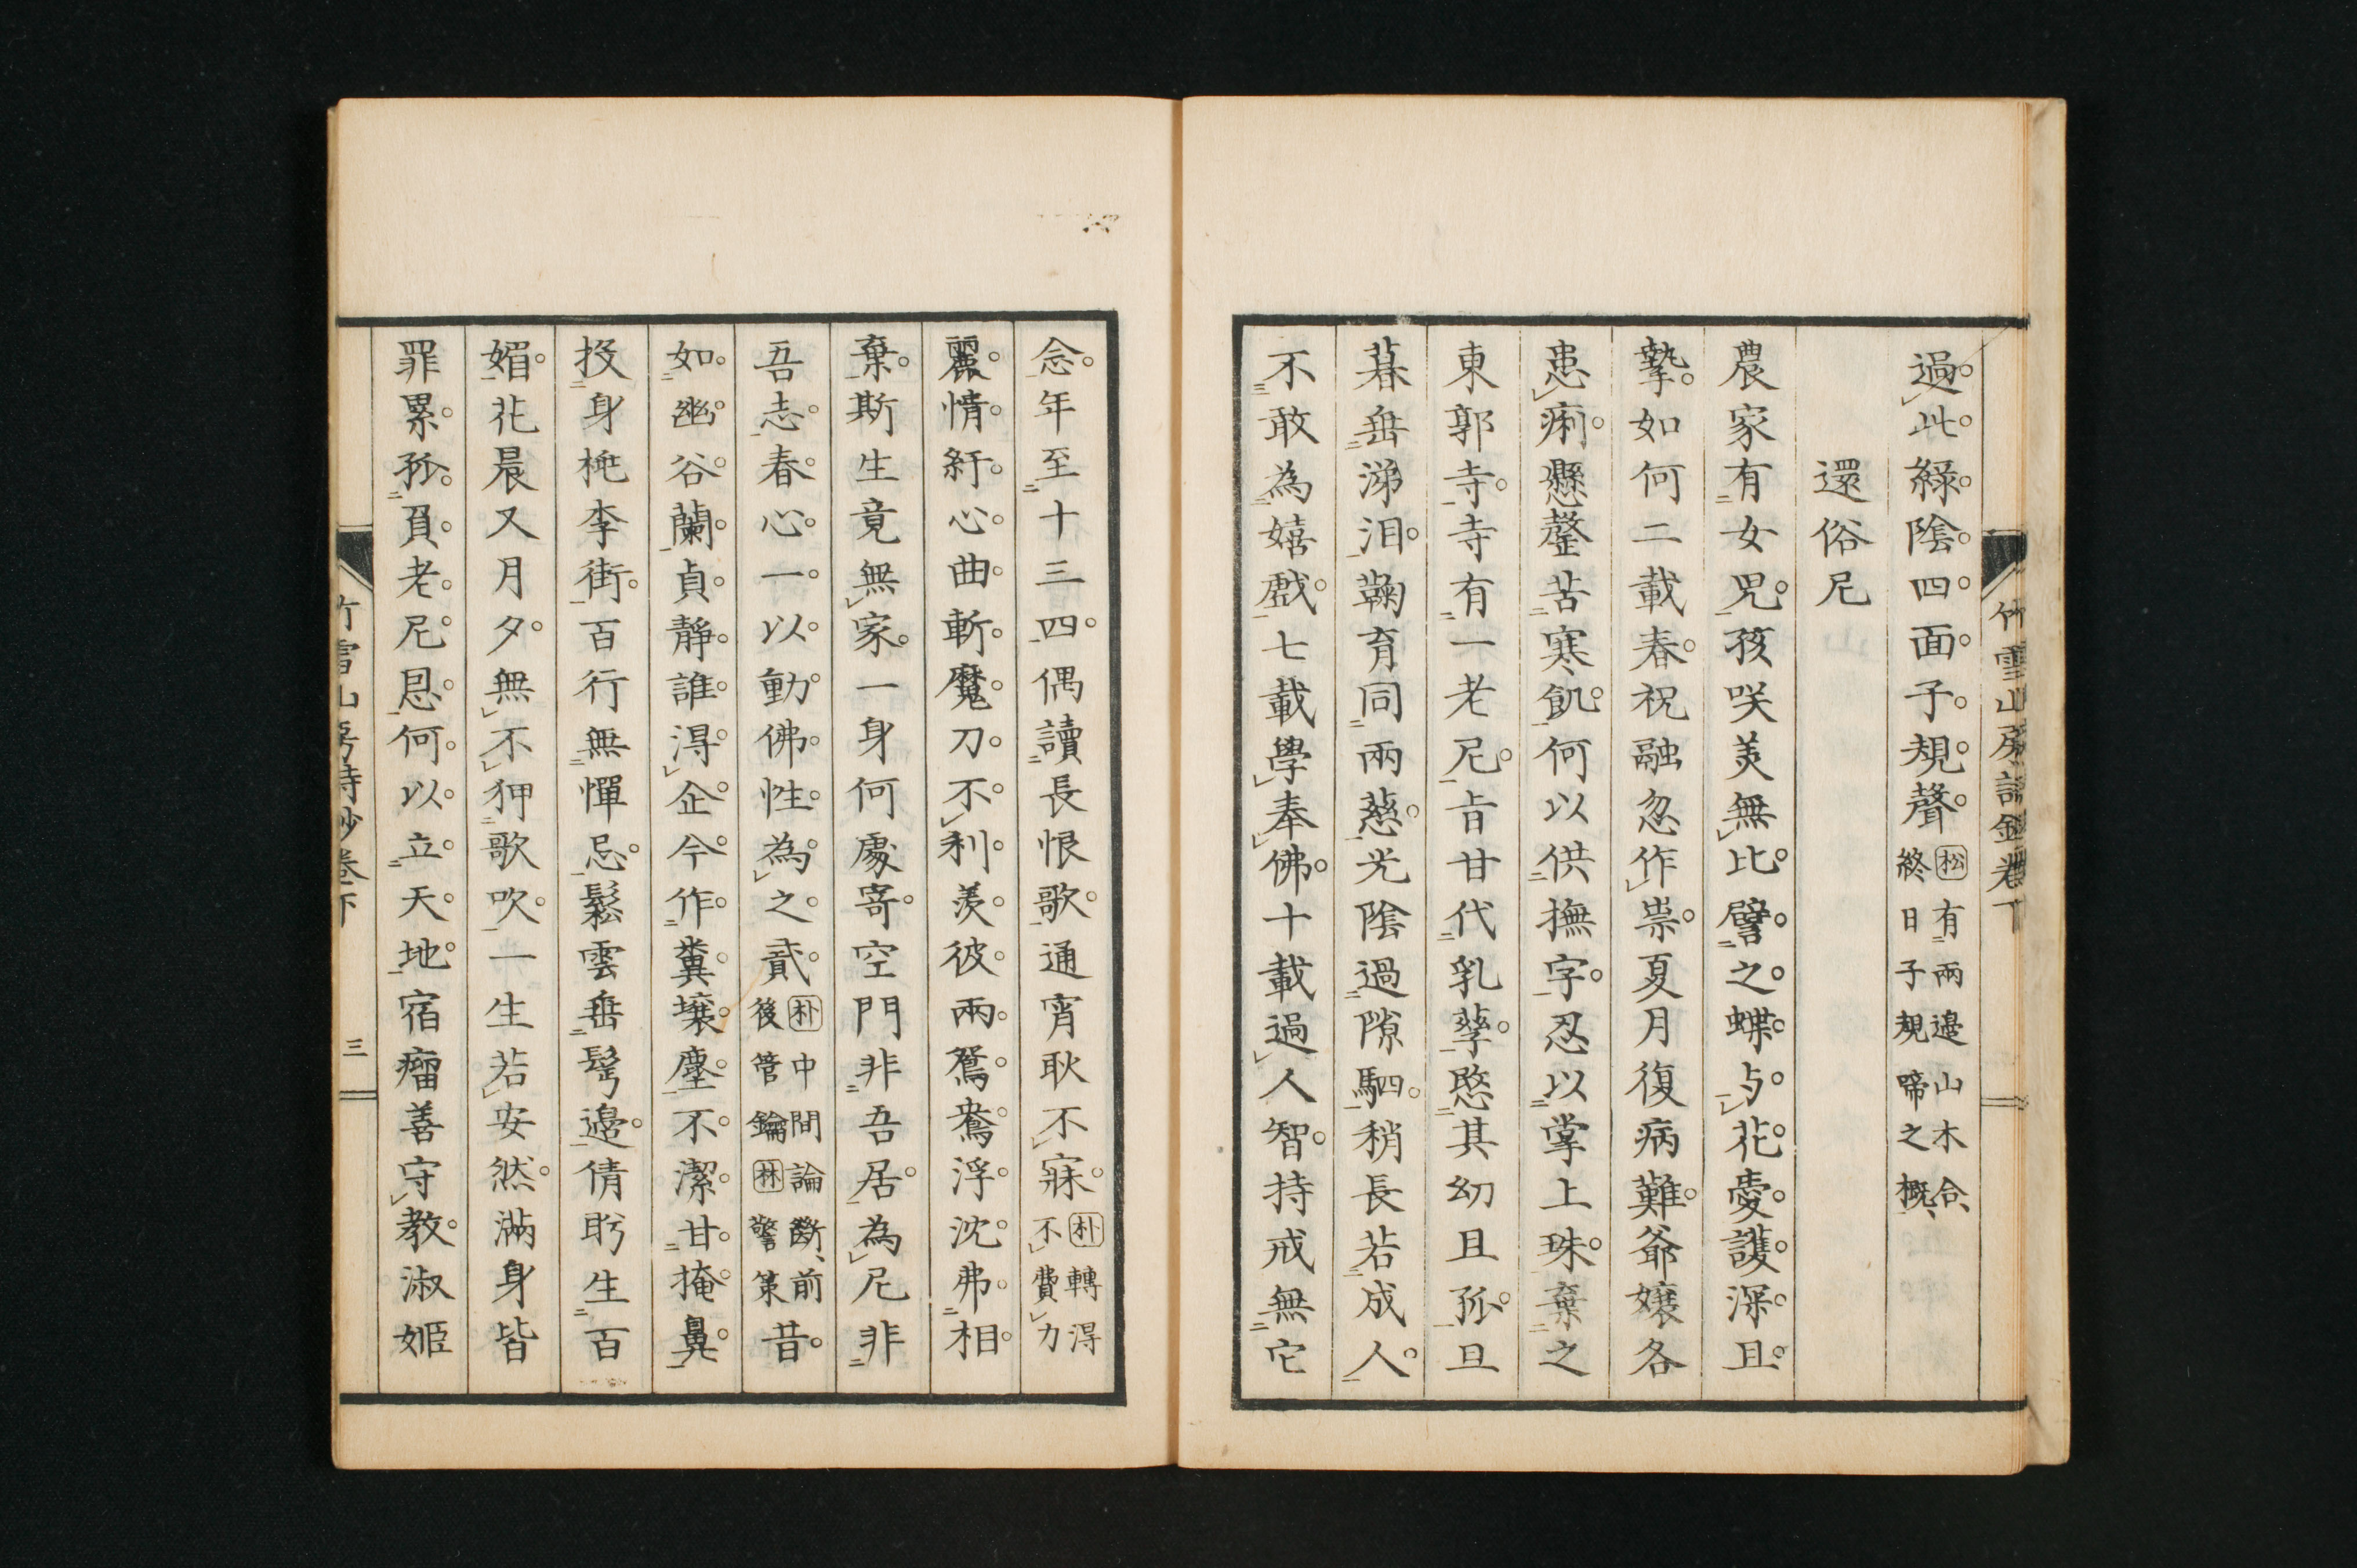 過此綠陰四面子規聲 松有兩邉山木合終日子規啼之概
還俗尼
農家有女兒孩咲美無比譬之蝶与花憂護深且
摯如何二載春祝融忽作祟夏月復病難爺孃各
患痢懸罄苦寒飢何以供撫字忍以掌上珠棄之
東郭寺寺有一老尼旨甘代乳孳愍其幼且孤旦
暮垂涕泪鞠育同兩慈光陰過隙駟稍長若成人
不敢為嬉戲七載學奉佛十載過人智持戒無它
念年至十三四偶讀長恨歌通宵耿不寐 朴轉得不費力
麗情紆心曲斬魔刀不利羨彼兩鴛鴦浮沈弗相
棄斯生竟無家一身何處寄空門非吾居為尼非
吾志春心一以動佛性為之貳 朴中間論斷前後管鑰林警策 昔
如幽谷蘭貞靜誰得企今作糞壤塵不潔甘掩鼻
投身桃李街百行無憚忌鬆雲垂髩邉倩盻生百
媚花晨又月夕無不狎歌吹一生若安然滿身皆
罪累孤負老尼恩何以立天地宿瘤善守教淑姬
竹雪山房詩鈔卷下
三